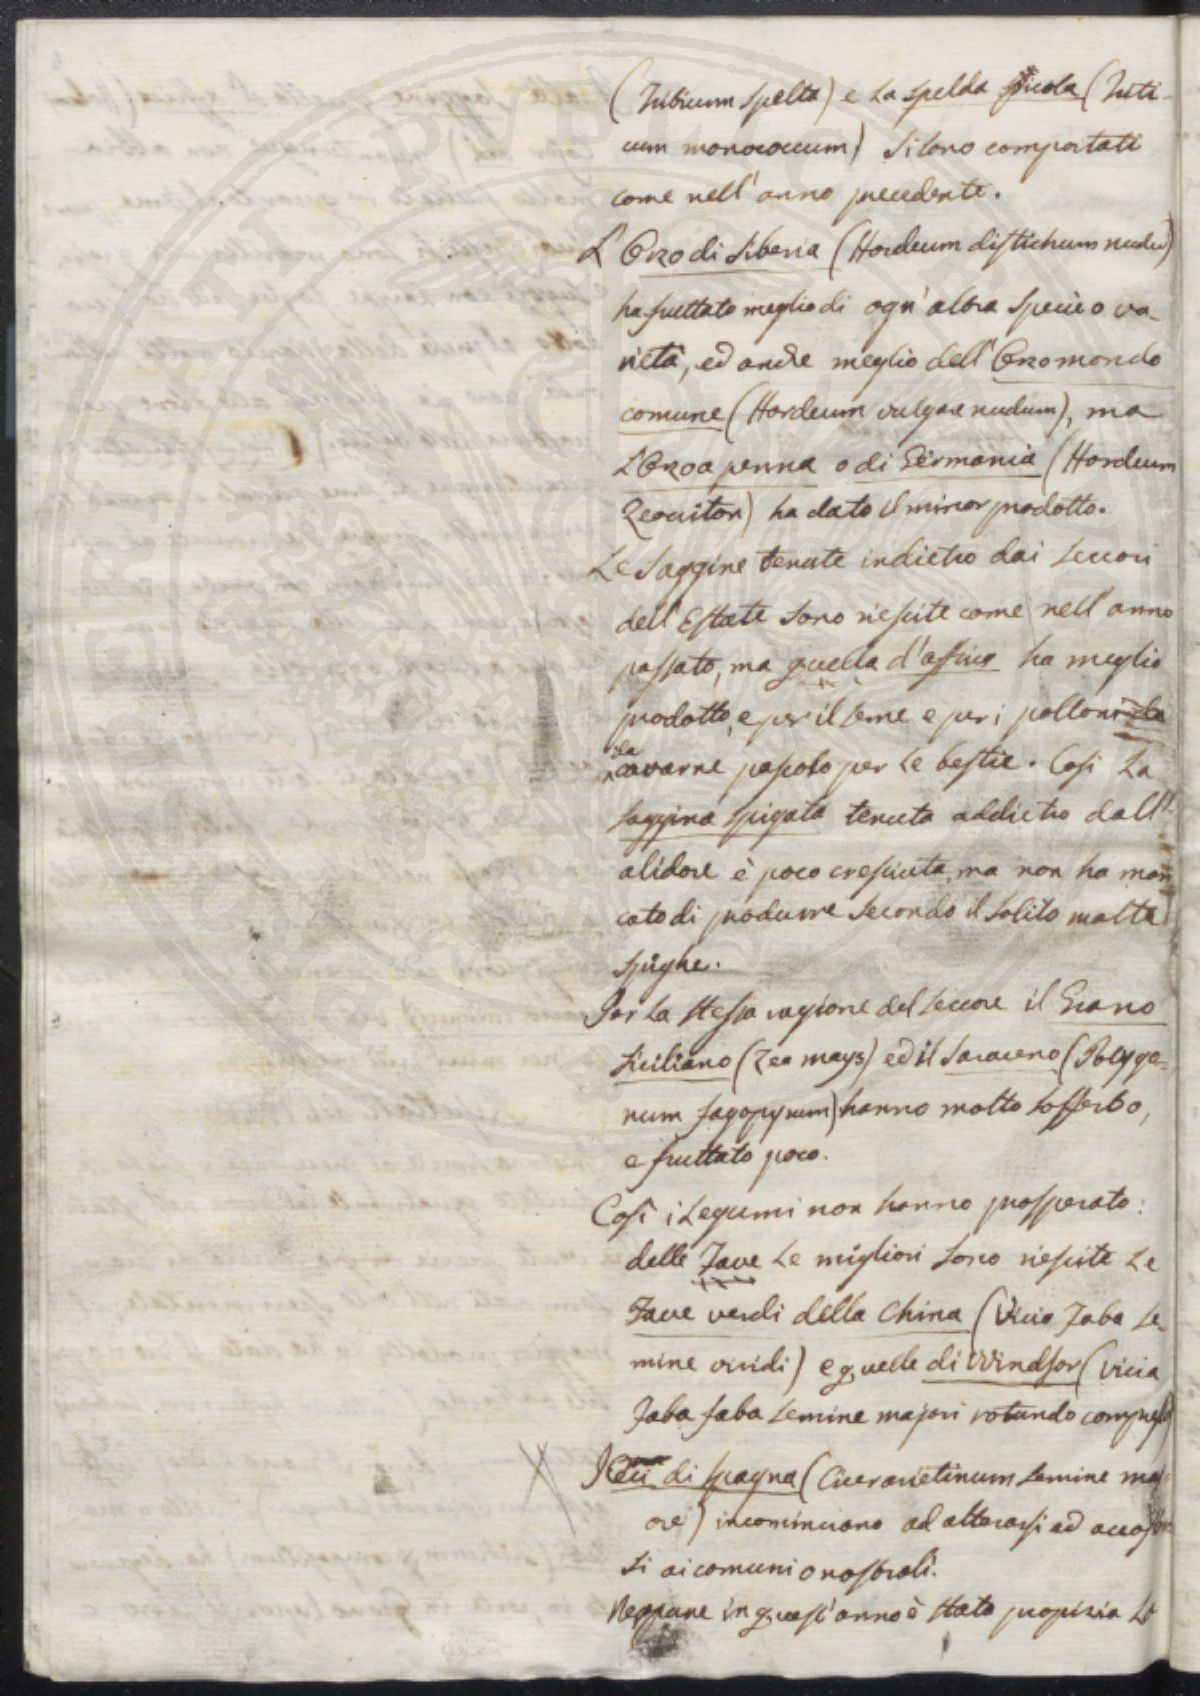 (Triticum Spelta) e la spelda picola (Triti-
cum monococcum) si sono comportati
come nell'anno precedente.
L'Orzo di Siberia (Hordeum distichum nudu)
ha fruttato meglio di ogn'altra specie o va-
rietà, ed anche meglio dell'Orzo mondo
comune (Hordeum vulgare nudum), ma
L'Orzo a penna o di Germania (Hordeum
Zeocriton) ha dato il minor prodotto.
Le Saggine tenute indietro dai seccori
dell'Estate sono riescite come nell'anno
passato, ma quella d'affrica ha meglio
prodotto, e per il seme e per i polloni da
da
cavarne pascolo per le bestie. Così la
saggina spigata tenuta addietro dall'
alidore è poco cresciuta, ma non ha man
cato di produrre secondo il solito molte
spighe.
Per la stessa ragione del seccore il Grano
siciliano (Zea mays) ed il saraceno (Polygo-
num fagopyrum) hanno molto sofferto,
e fruttato poco.
Così i Legumi non hanno prosperato:
delle Fave le migliori sono riescite le
Fave verdi della China (Vicia Faba se-
mine viridi) e quelle di Windsor (Vicia
Faba faba semine majori rotundo compresso)
I Ceci di Spagna (Cicer arietinum semine maj
ore) incominciano ad alterarsi ed accostar
si ai comuni o nostrali.
Neppure in quest'anno è stata propizia la